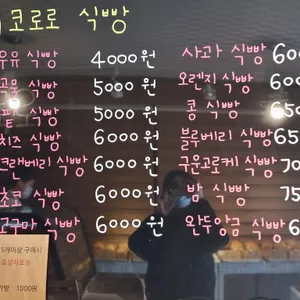 코로로 식빵
우유 식빵 4000원
식빵 5000원
식빵 5000원
치즈 식빵 6000원
크랜베리 식빵 6000원
초코 식빵 6000원
고구마 식빵 6000원
사과 식빵 600
오렌지 식빵 600
콩 식빵 650
블루베리 식빵 65
구운고로케 식빵 70
밤 식빵 75
완두앙금 식빵 6
5개이상 구매시
1000원